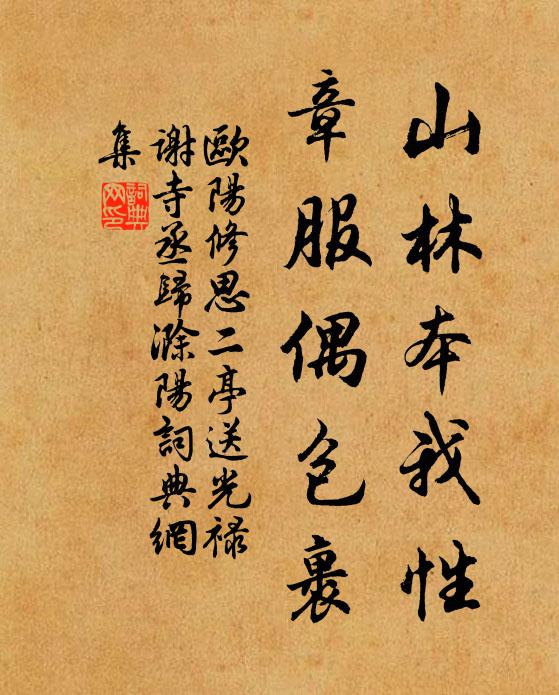 山林本我性
章服偶包裹
歐陽修思二亭送光禄
謝寺丞歸滁陽詞典網
集
詞典
网印